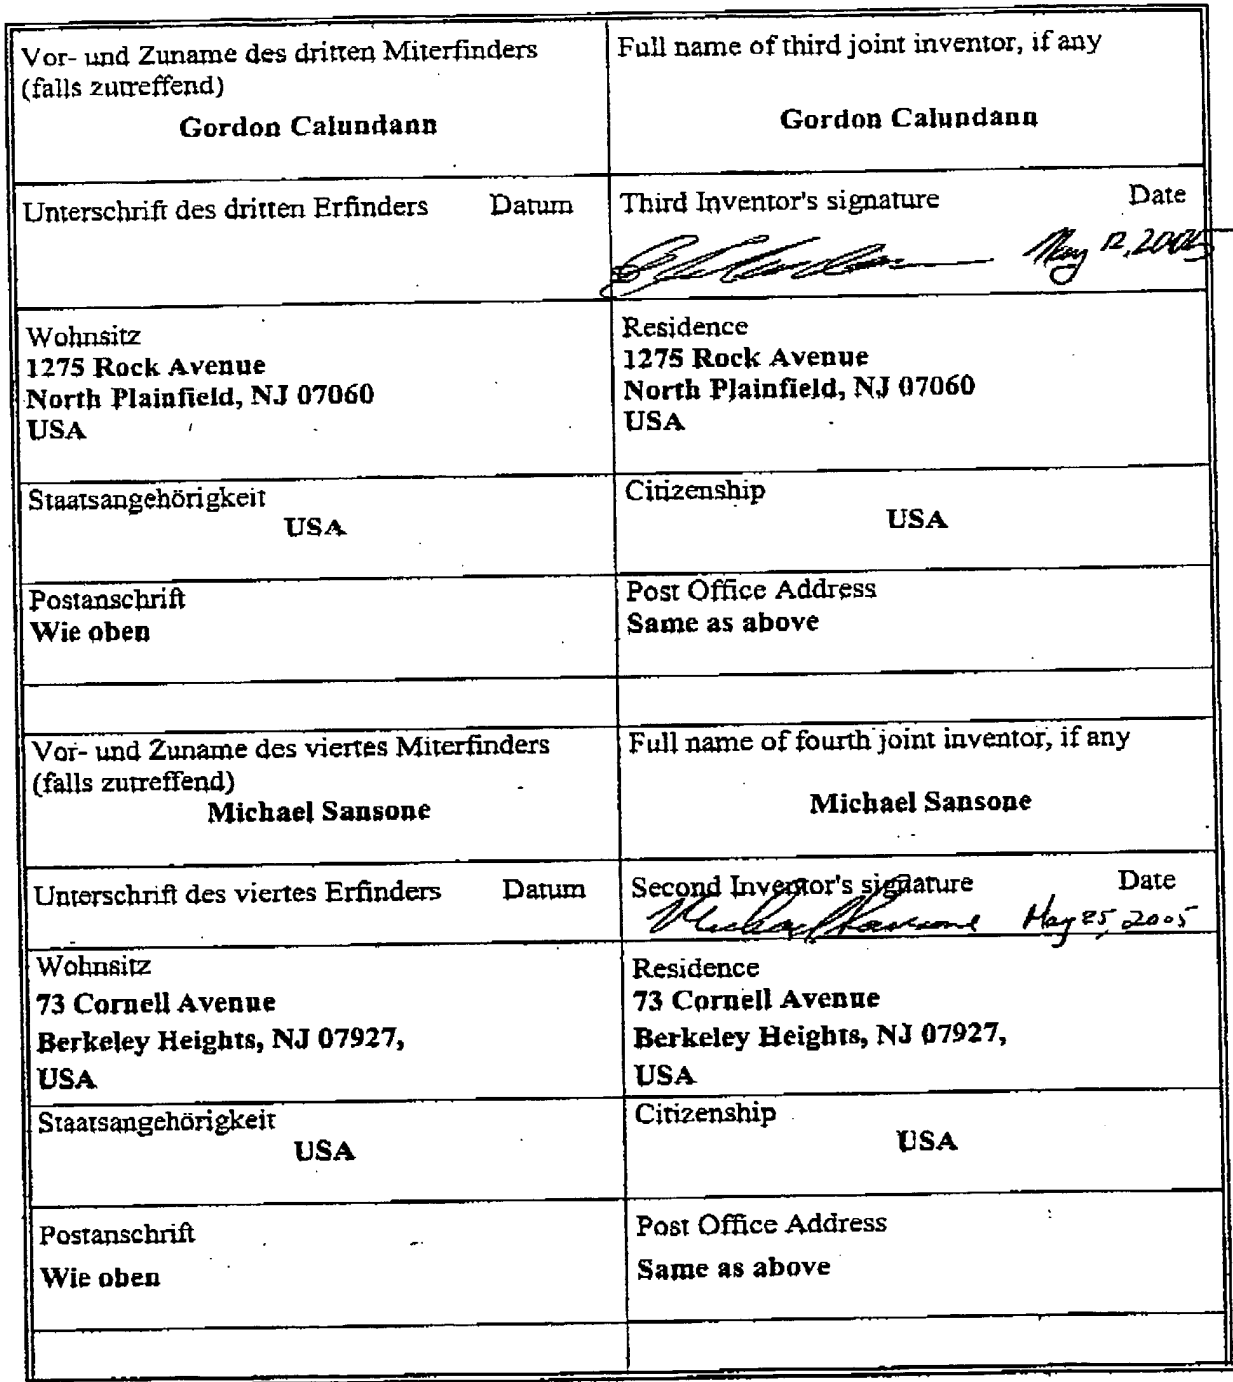 Vor- und Zuname des dritten Miterfinders
(falls zutreffend)
Gordon Calundann
Full name of third joint inventor, if any
Gordon Calundann
Unterschrift des dritten Erfinders Datum
Third Inventor's signature Date
May 12, 2005
Wohnsitz
1275 Rock Avenue
North Plainfield, NJ 07060
USA
Residence
1275 Rock Avenue
North Plainfield, NJ 07060
USA
Staatsangehörigkeit
USA
Citizenship
USA
Postanschrift
Wie oben
Post Office Address
Same as above
Vor- und Zuname des viertes Miterfinders
(falls zutreffend)
Michael Sansone
Full name of fourth joint inventor, if any
Michael Sansone
Unterschrift des viertes Erfinders Datum
Second Inventor's signature Date
Michael Sansone May 25, 2005
Wohnsitz
73 Cornell Avenue
Berkeley Heights, NJ 07927,
USA
Residence
73 Cornell Avenue
Berkeley Heights, NJ 07927,
USA
Staatsangehörigkeit
USA
Citizenship
USA
Postanschrift
Wie oben
Post Office Address
Same as above